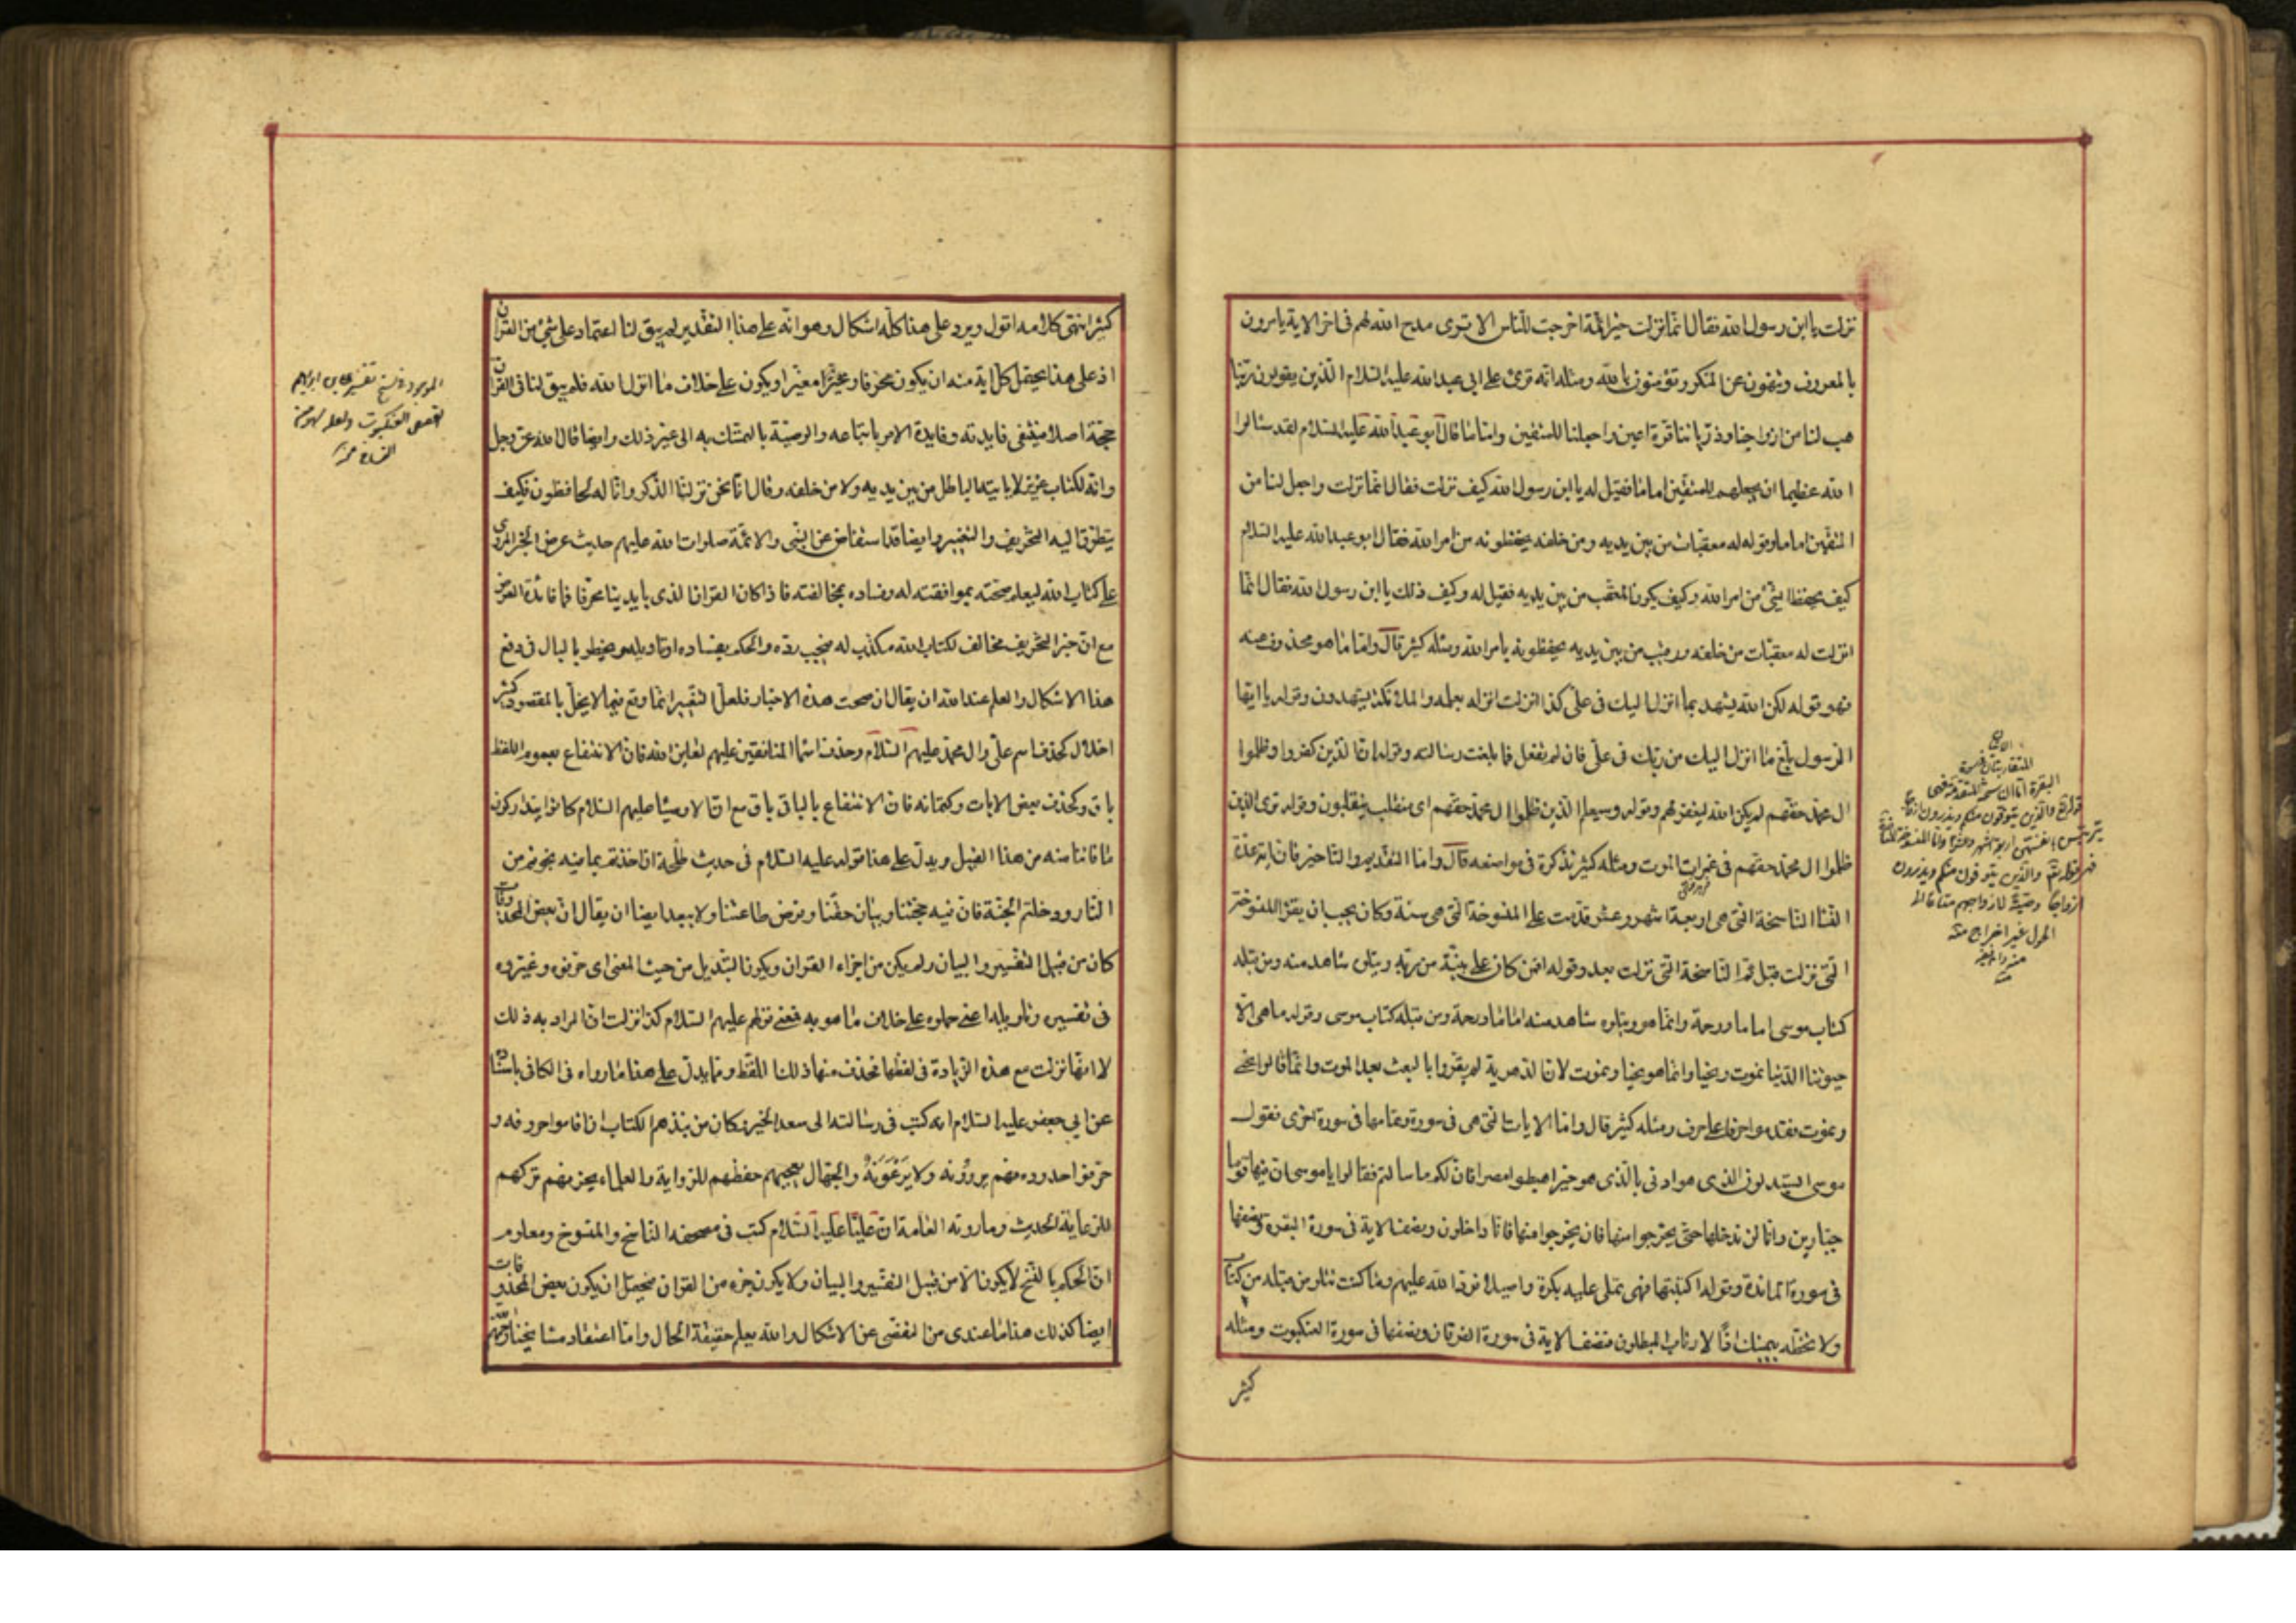 نزلت يا ابن رسول الله فقال انما نزلت خير ائمة اخرجت للناس الا ترى مدح الله لهم فى اخر الاية يامرون
بالمعروف وينهون عن المنكر وتؤمنون بالله ومثله انه قرئ على ابى عبدالله عليه السلام الذين يقولون ربنا
هب لنا من ازواجنا وذرياتنا قرة اعين واجعلنا للمتقين اماما فقال ابو عبدالله عليه السلام لقد سئالوا
الله عظيما ان يجعلهم للمتقين اماما فقيل له يا ابن رسول الله كيف نزلت فقال انما نزلت واجعل لنا من
المتقين اماما وقوله له معقبات من بين يديه ومن خلفه يحفظونه من امر الله فقال ابو عبدالله عليه السلام
كيف يحفظ الشئ من امر الله وكيف يكون المعقب من بين يديه فقيل له وكيف ذلك يا ابن رسول الله فقال انما
انزلت له معقبات من خلفه ورقيب من بين يديه يحفظونه بامر الله ومثله كثير قال واما ما هو محذوف عنه
فهو قوله لكن الله يشهد بما انزل اليك فى على كذا انزلت انزله بعلمه والملائكة يشهدون وقوله يا ايها
الرسول بلغ ما انزل اليك من ربك فى على فان لم تفعل فما بلغت رسالته وقوله ان الذين كفروا وظلموا
ال محمد حقهم لم يكن الله ليغفر لهم وقوله وسيعلم الذين ظلموا ال محمد حقهم اى منقلب ينقلبون وقوله ترى الذين
ظلموا ال محمد حقهم فى غمرات الموت ومثله كثير نذكره فى مواضعه قال واما التقديم والتاخير فان اية عدة
النساء الناسخة التى هى اربعة اشهر وعشر قدمت على المنسوخة التى هى سنة وكان يجب ان يقرا المنسوخة
التى نزلت قبل ثم الناسخة التى نزلت بعد وقوله افمن كان على بينة من ربه ويتلوه شاهد منه ومن قبله
كتاب موسى اماما ورحمة وانما هو ويتلوه شاهد منه اماما ورحمة ومن قبله كتاب موسى وقوله ما هى الا
حيوتنا الدنيا نموت ونحيا وانما هو نحيا ونموت لان الدهرية لم يقروا بالبعث بعد الموت وانما قالوا نحيى
ونموت فقدموا حرفا على حرف ومثله كثير قال واما الايات التى هى فى سورة وتمامها فى سورة اخرى فقول
موسى اتستبدلون الذى هو ادنى بالذى هو خير اهبطوا مصرا فان لكم ما سالتم فقالوا يا موسى ان فيها قوما
جبارين وانا لن ندخلها حتى يخرجوا منها فان يخرجوا منها فانا داخلون ونصف الاية فى سورة البقرة ونصفها
فى سورة المائدة وقوله اكتتبها فهى تملى عليه بكرة واصيلا فرد الله عليهم وما كنت تتلو من قبله من كتاب
ولا تخطه بيمينك اذًا لارتاب المبطلون فنصف الاية فى سورة الفرقان ونصفها فى سورة العنكبوت ومثله
كثير
البقرة
قوله تع والذين يتوفون منكم ويذرون ازواجا
يتربصن بانفسهن اربعة اشهر وعشرا واما المنسوخة
فهى قوله تع والذين يتوفون منكم ويذرون
ازواجا وصية لازواجهم متاعا الى
الحول غير اخراج منه
كثير انتهى كلامه اقول ويرد على هذا كله اشكال وهو انه على هذا التقدير لم يبق لنا اعتماد على شئ من القران
اذ على هذا يحتمل كل اية منه ان يكون محرفا ومغيرا ويكون على خلاف ما انزل الله فلم يبق لنا فى القران
حجة اصلا فينتفى فايدته وفايدة الامر باتباعه والوصية بالتمسك به الى غير ذلك وايضا قال الله عز وجل
وانه لكتاب عزيز لا ياتيه الباطل من بين يديه ولا من خلفه وقال انا نحن نزلنا الذكر وانا له لحافظون فكيف
يتطرق اليه التحريف والتغيير وايضا قد استفاض عن النبى والائمة صلوات الله عليهم حديث عرض الخبر المروى
على كتاب الله ليعلم صحته بموافقته له وفساده بمخالفته فاذا كان القران الذى بايدينا محرفا فما فائدة العرض
مع ان خبر التحريف مخالف لكتاب الله مكذب له فيجب رده والحكم بفساده او تاويله ويخطر بالبال فى دفع
هذا الاشكال والعلم عند الله ان يقال ان صحت هذه الاخبار فلعل التغيير انما وقع فيما لا يخل بالمقصود كثير
اخلال كحذف اسم على وال محمد عليهم السلام وحذف اسماء المنافقين عليهم لعاين الله فان الانتفاع بعموم اللفظ
باق وكحذف بعض الايات وكتمانه فان الانتفاع بالباقى باق مع ان الاوصيا عليهم السلام كانوا يتداركون
ما فاتنا منه من هذا القبيل ويدل على هذا قوله عليه السلام فى حديث طلحة ان اخذتم بما فيه نجوتم من
النار ودخلتم الجنة فان فيه حجتنا وبيان حقنا وفرض طاعتنا ولا يبعد ايضا ان يقال ان بعض المحذوفات
كان من قبيل التفسير والبيان ولم يكن من اجزاء القران ويكون التبديل من حيث المعنى اى حرفوه وغيروه
فى تفسيره وتاويله اعنى حملوه على خلاف ما هو به فمعنى قولهم عليهم السلام كذا نزلت ان المراد به ذلك
لا انها نزلت مع هذه الزيادة فى لفظها فحذف منها ذلك اللفظ ومما يدل على هذا ما رواه فى الكافى باسناده
عن ابى جعفر عليه السلام انه كتب فى رسالته الى سعد الخير وكان من نبذهم الكتاب ان اقاموا حروفه و
حرفوا حدوده فهم يروونه ولا يرعونه والجهال يعجبهم حفظهم للرواية والعلماء يحزنهم تركهم
للرعاية الحديث وما روته العامة ان عليا عليه السلام كتب فى مصحفه الناسخ والمنسوخ ومعلوم
ان الحكم بالنسخ لا يكون الا من قبيل التفسير والبيان ولا يكون جزء من القران فيحتمل ان يكون بعض المحذوفات
ايضا كذلك هذا ما عندى من التفصى عن الاشكال والله يعلم حقيقة الحال واما اعتقاد مشايخنا
الموجود فى نسخ تفسير على بن ابراهيم
القصص العنكبوت ولعله سهو من
النساخ